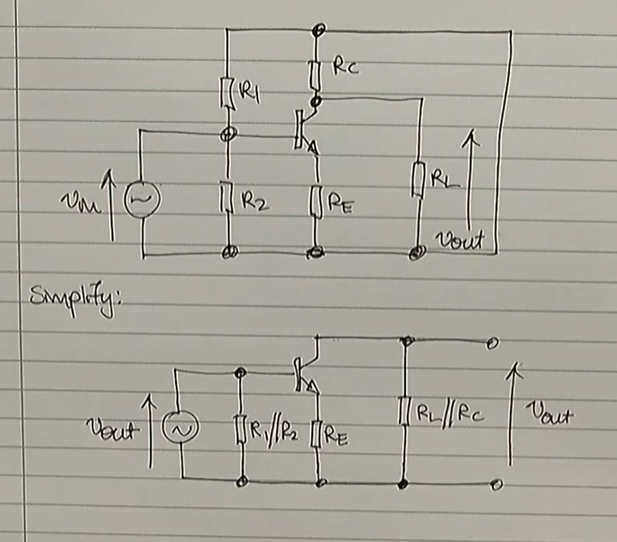 RC
R1
vin
R2
RE
RL
vout
Simplify:
vout
R1//R2
RE
RL//RC
vout